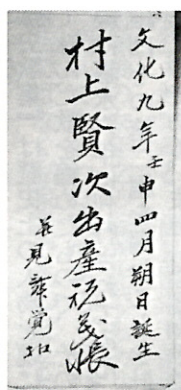 文化九年壬申四月朔日誕生
村上賢次出産祝義帳
并見舞覚扣